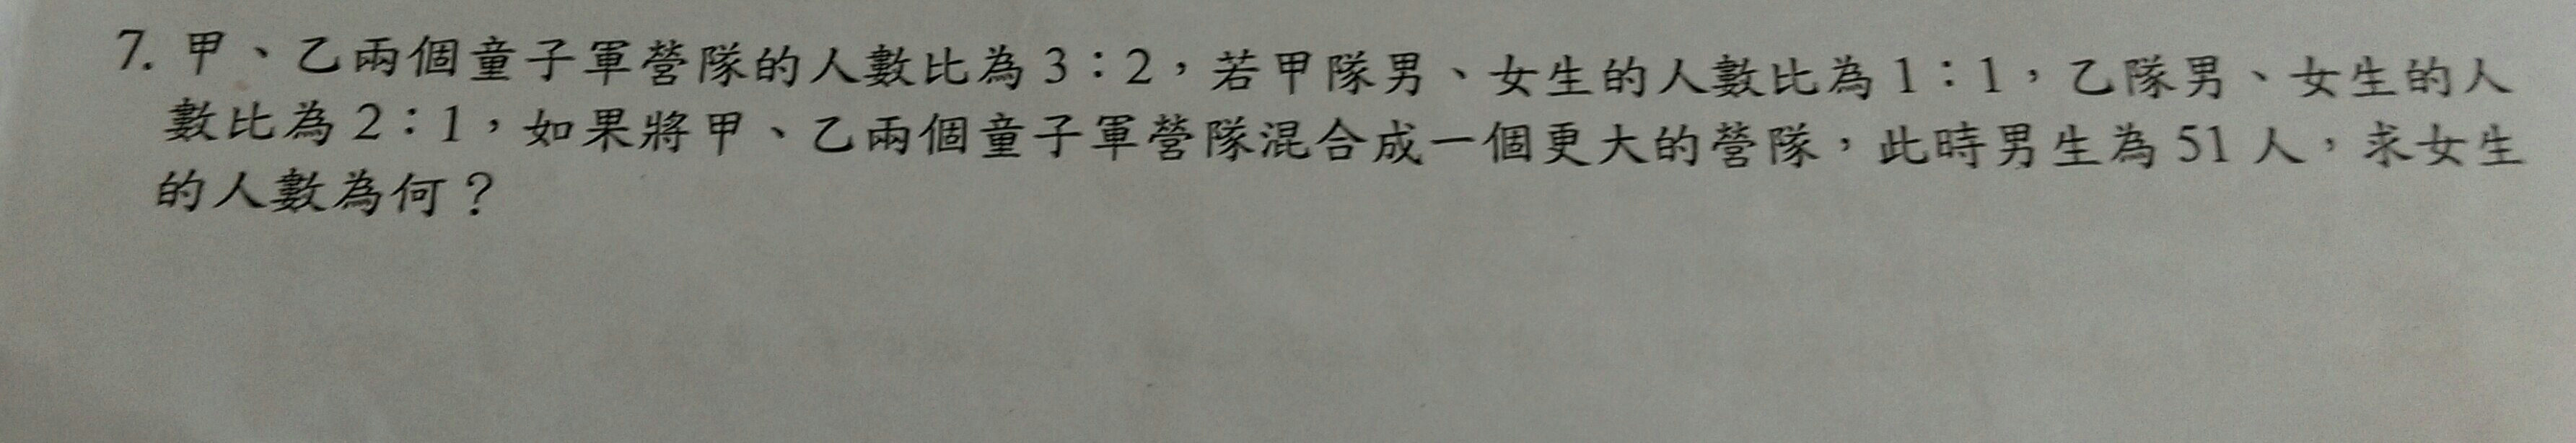 7. 甲、乙兩個童子軍營隊的人數比為 3：2，若甲隊男、女生的人數比為 1：1，乙隊男、女生的人
數比為 2：1，如果將甲、乙兩個童子軍營隊混合成一個更大的營隊，此時男生為 51 人，求女生
的人數為何？